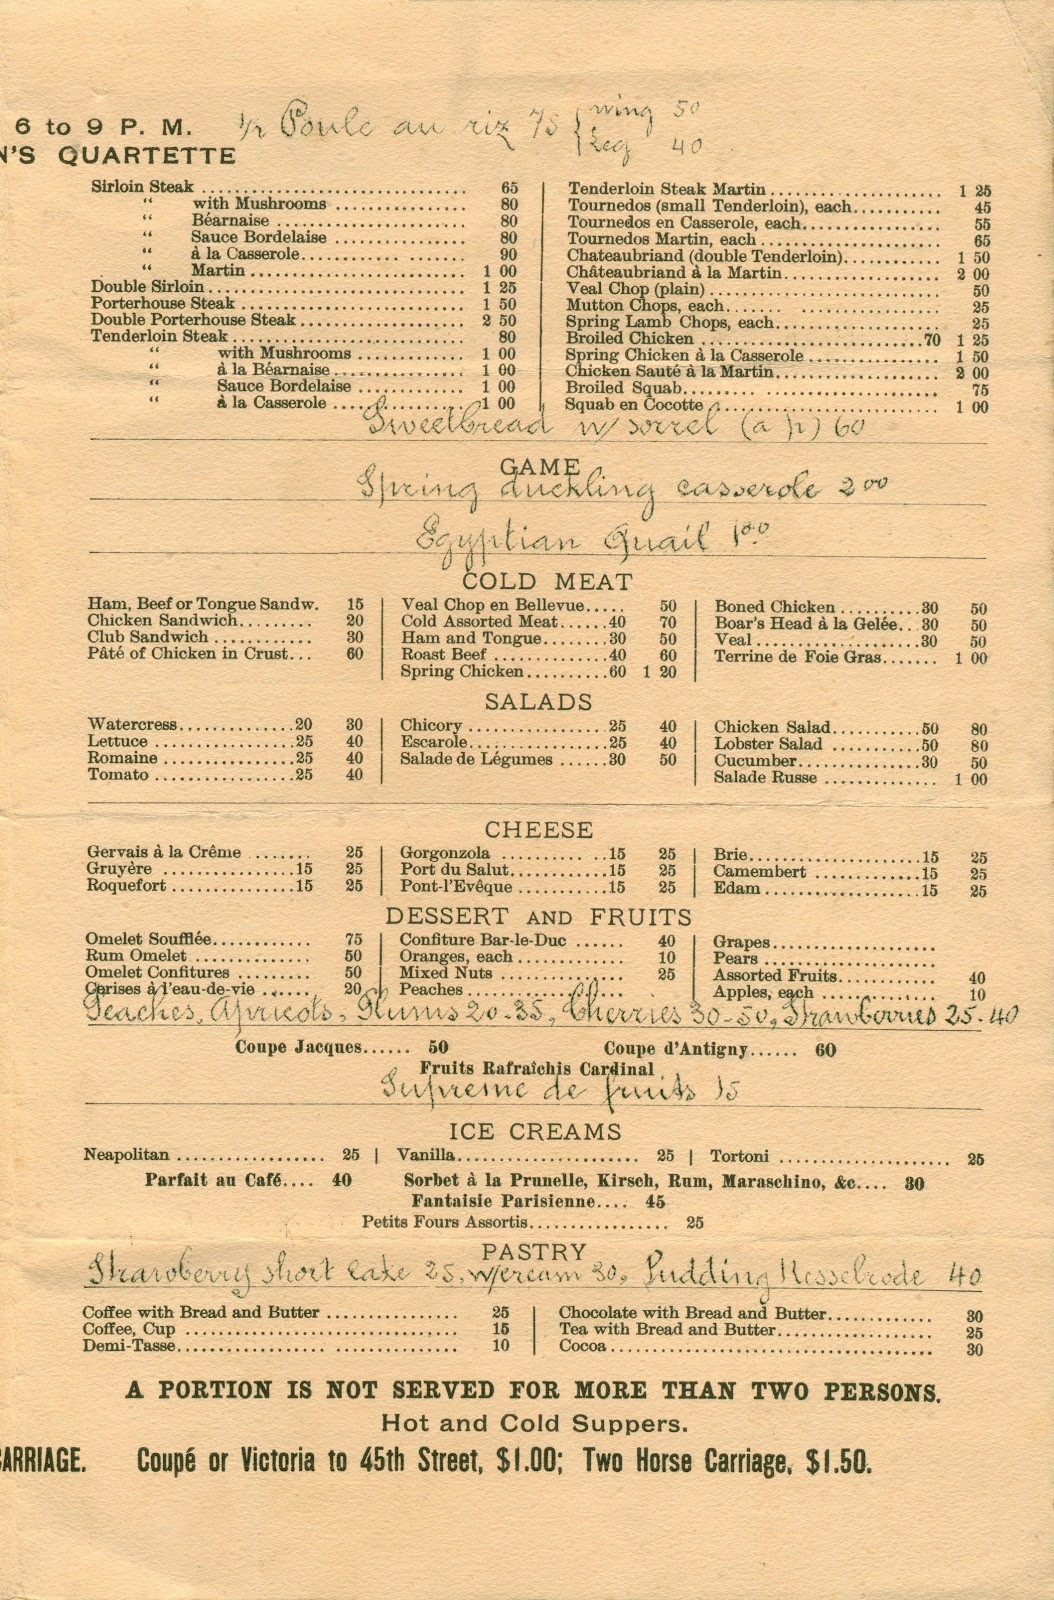 6 to 9 P. M.
N'S QUARTETTE
1/2 Poule au riz 75 { wing 50
{ Leg 40
Sirloin Steak ........ 65
“ with Mushrooms ........ 80
“ Béarnaise ........ 80
“ Sauce Bordelaise ........ 80
“ à la Casserole ........ 90
“ Martin ........ 1 00
Double Sirloin ........ 1 25
Porterhouse Steak ........ 1 50
Double Porterhouse Steak ........ 2 50
Tenderloin Steak ........ 80
“ with Mushrooms ........ 1 00
“ à la Béarnaise ........ 1 00
“ Sauce Bordelaise ........ 1 00
“ à la Casserole ........ 1 00
Tenderloin Steak Martin ........ 1 25
Tournedos (small Tenderloin), each ........ 45
Tournedos en Casserole, each ........ 55
Tournedos Martin, each ........ 65
Chateaubriand (double Tenderloin) ........ 1 50
Châteaubriand à la Martin ........ 2 00
Veal Chop (plain) ........ 50
Mutton Chops, each ........ 25
Spring Lamb Chops, each ........ 25
Broiled Chicken ........ 70 1 25
Spring Chicken à la Casserole ........ 1 50
Chicken Sauté à la Martin ........ 2 00
Broiled Squab ........ 75
Squab en Cocotte ........ 1 00
Sweetbread w/ sorrel (a p) 60
GAME
Spring duckling casserole 2 00
Egyptian Quail 1 00
COLD MEAT
Ham, Beef or Tongue Sandw. 15
Chicken Sandwich ........ 20
Club Sandwich ........ 30
Pâté of Chicken in Crust... 60
Veal Chop en Bellevue ..... 50
Cold Assorted Meat ...... 40 70
Ham and Tongue ........ 30 50
Roast Beef ........ 40 60
Spring Chicken ........ 60 1 20
Boned Chicken ........ 30 50
Boar's Head à la Gelée... 30 50
Veal ........ 30 50
Terrine de Foie Gras ....... 1 00
SALADS
Watercress ........ 20 30
Lettuce ........ 25 40
Romaine ........ 25 40
Tomato ........ 25 40
Chicory ........ 25 40
Escarole ........ 25 40
Salade de Légumes ...... 30 50
Chicken Salad ........ 50 80
Lobster Salad ........ 50 80
Cucumber ........ 30 50
Salade Russe ........ 1 00
CHEESE
Gervais à la Crême ........ 25
Gruyère ........ 15 25
Roquefort ........ 15 25
Gorgonzola ........ 15 25
Port du Salut ........ 15 25
Pont-l'Evêque ........ 15 25
Brie ........ 15 25
Camembert ........ 15 25
Edam ........ 15 25
DESSERT AND FRUITS
Omelet Soufflée ........ 75
Rum Omelet ........ 50
Omelet Confitures ........ 50
Cerises à l'eau-de-vie ...... 20
Confiture Bar-le-Duc ...... 40
Oranges, each ........ 10
Mixed Nuts ........ 25
Peaches ........
Grapes ........
Pears ........
Assorted Fruits ........ 40
Apples, each ........ 10
Peaches, Apricots, Plums 20-35, Cherries 30-50, Strawberries 25-40
Coupe Jacques...... 50 Coupe d'Antigny...... 60
Fruits Rafraîchis Cardinal
Supreme de fruits 15
ICE CREAMS
Neapolitan ........ 25 | Vanilla ........ 25 | Tortoni ........ 25
Parfait au Café.... 40 Sorbet à la Prunelle, Kirsch, Rum, Maraschino, &c.... 30
Fantaisie Parisienne.... 45
Petits Fours Assortis ........ 25
PASTRY
Strawberry short cake 25, w/cream 30, Pudding Nesselrode 40
Coffee with Bread and Butter ........ 25
Coffee, Cup ........ 15
Demi-Tasse ........ 10
Chocolate with Bread and Butter ........ 30
Tea with Bread and Butter ........ 25
Cocoa ........ 30
A PORTION IS NOT SERVED FOR MORE THAN TWO PERSONS.
Hot and Cold Suppers.
CARRIAGE. Coupé or Victoria to 45th Street, $1.00; Two Horse Carriage, $1.50.